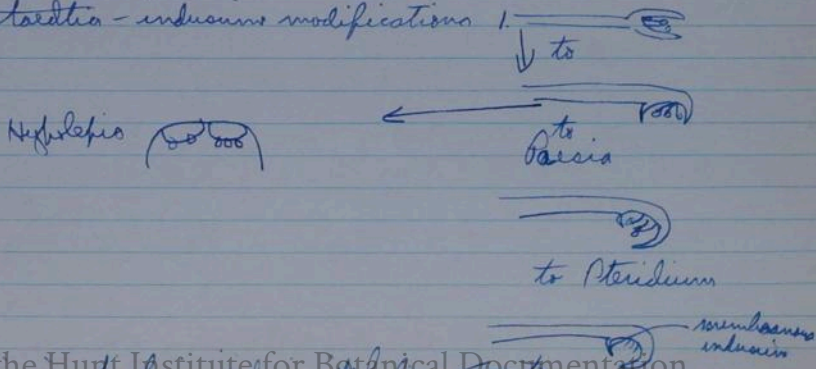 - indusium modifications 1.
to
Hypolepis
to
Paesia
to Pteridium
membranous
indusium
the Hunt Institute for Botanical Documentation